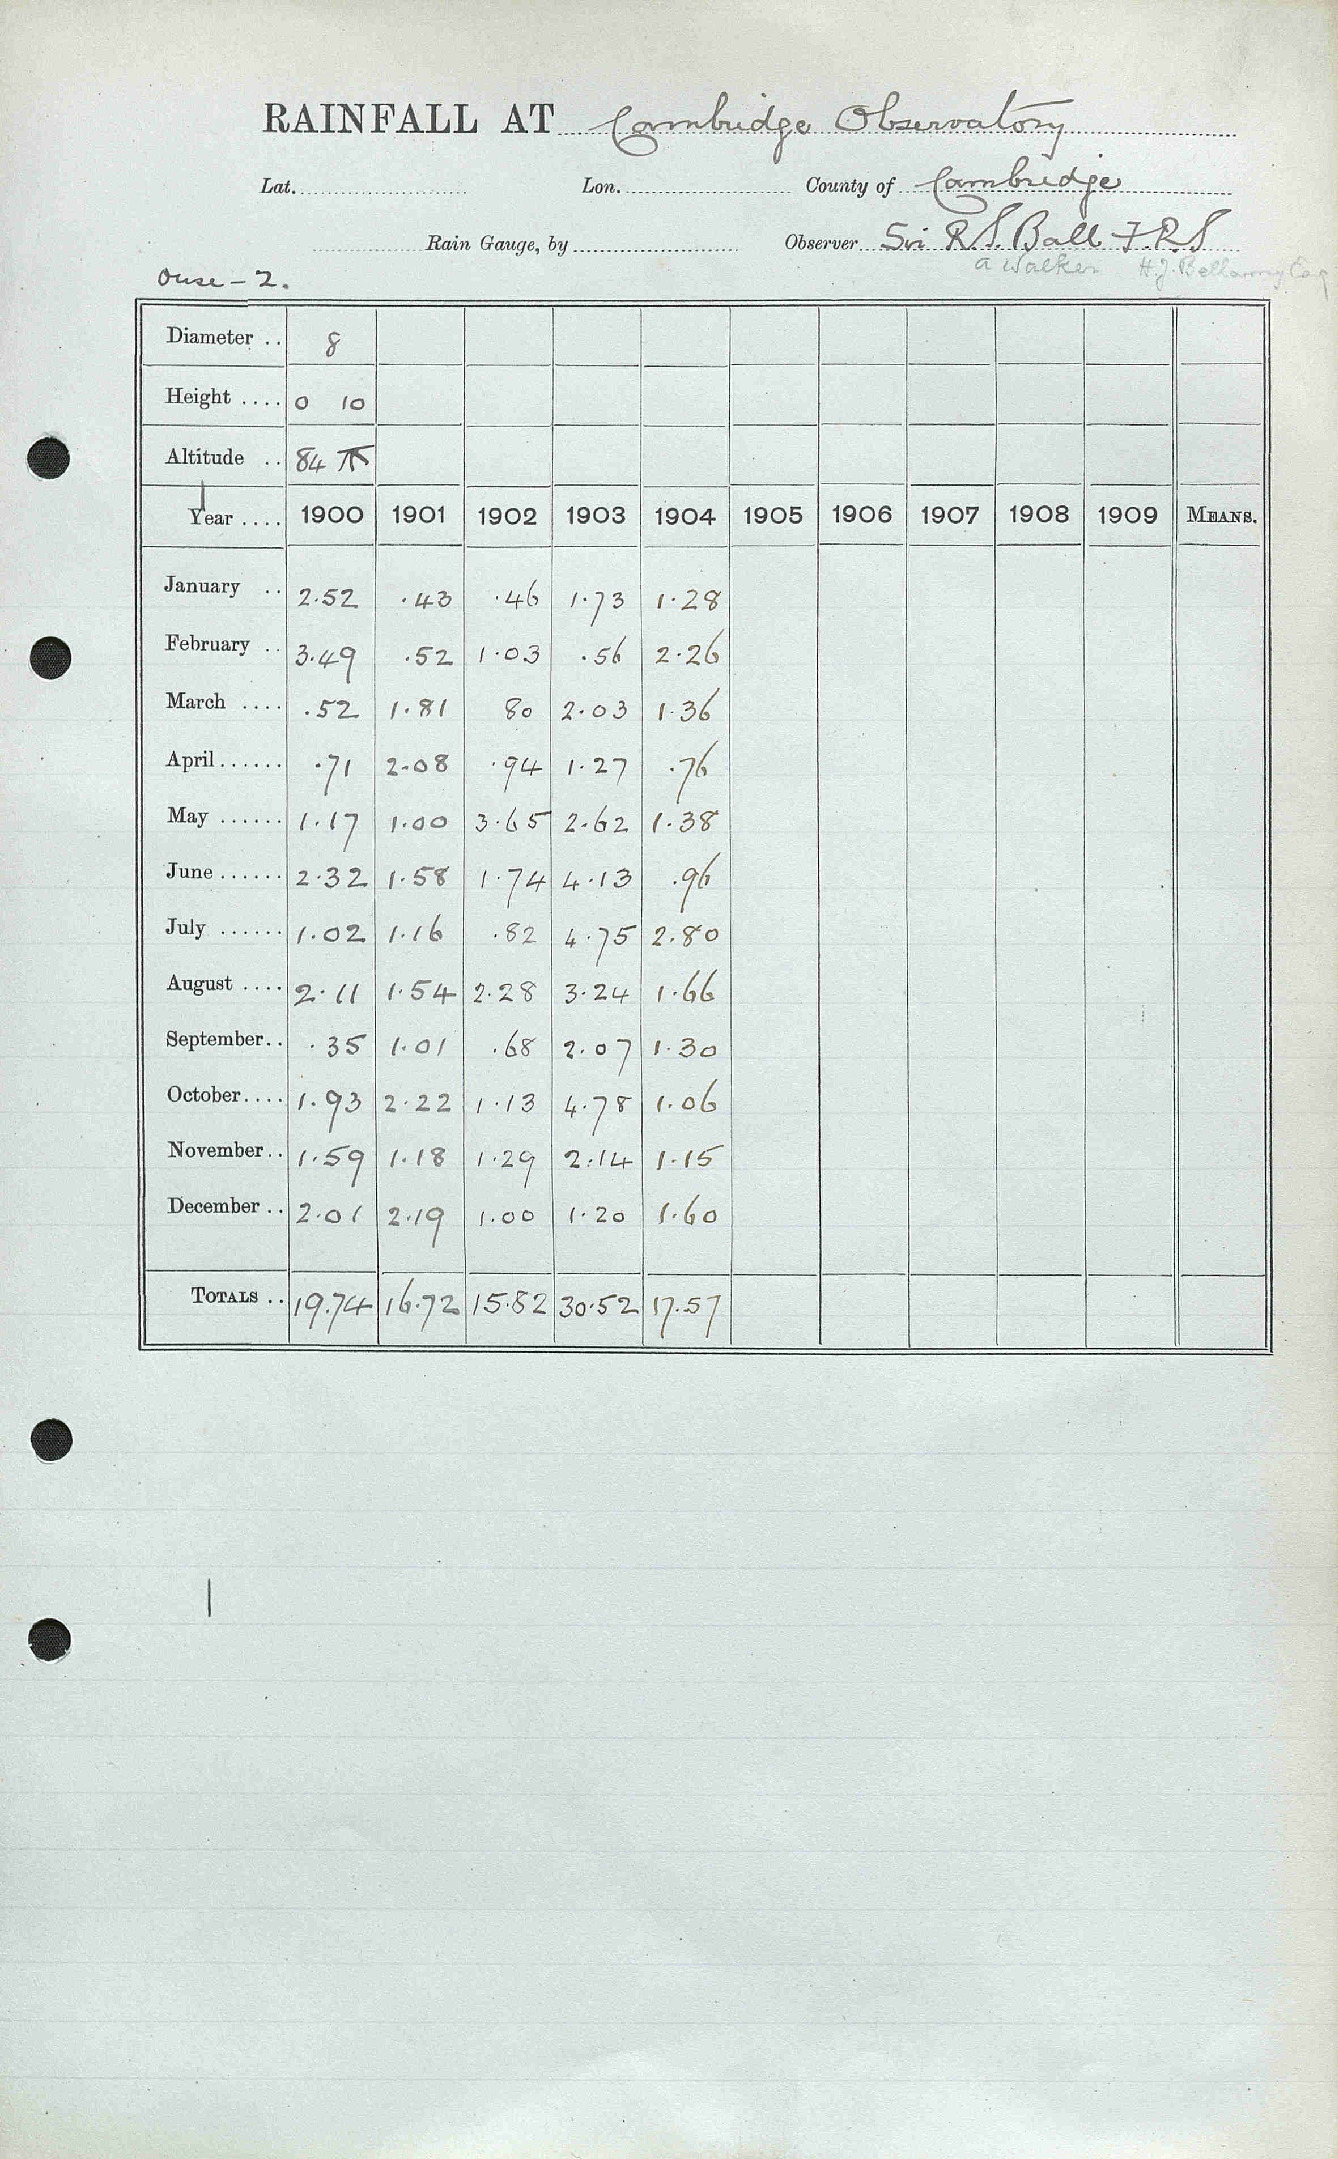 RAINFALL AT Cambridge Observatory
Lat. Lon. County of Cambridge
Rain Gauge, by Observer Sir R.S. Ball F.R.S
A Walker H.J. Bellamy Esq
Ouse - 2.
Diameter .. 8
Height .... 0 10
Altitude .. 84
Year .... 1900 1901 1902 1903 1904 1905 1906 1907 1908 1909 MEANS.
January .. 2.52 .43 .46 1.73 1.28
February .. 3.49 .52 1.03 .56 2.26
March .... .52 1.81 80 2.03 1.36
April ...... .71 2.08 .94 1.27 .76
May ...... 1.17 1.00 3.65 2.62 1.38
June ...... 2.32 1.58 1.74 4.13 .96
July ...... 1.02 1.16 .82 4.75 2.80
August .... 2.11 1.54 2.28 3.24 1.66
September.. .35 1.01 .68 2.07 1.30
October.... 1.93 2.22 1.13 4.78 1.06
November.. 1.59 1.18 1.29 2.14 1.15
December .. 2.01 2.19 1.00 1.20 1.60
TOTALS .. 19.74 16.72 15.82 30.52 17.57